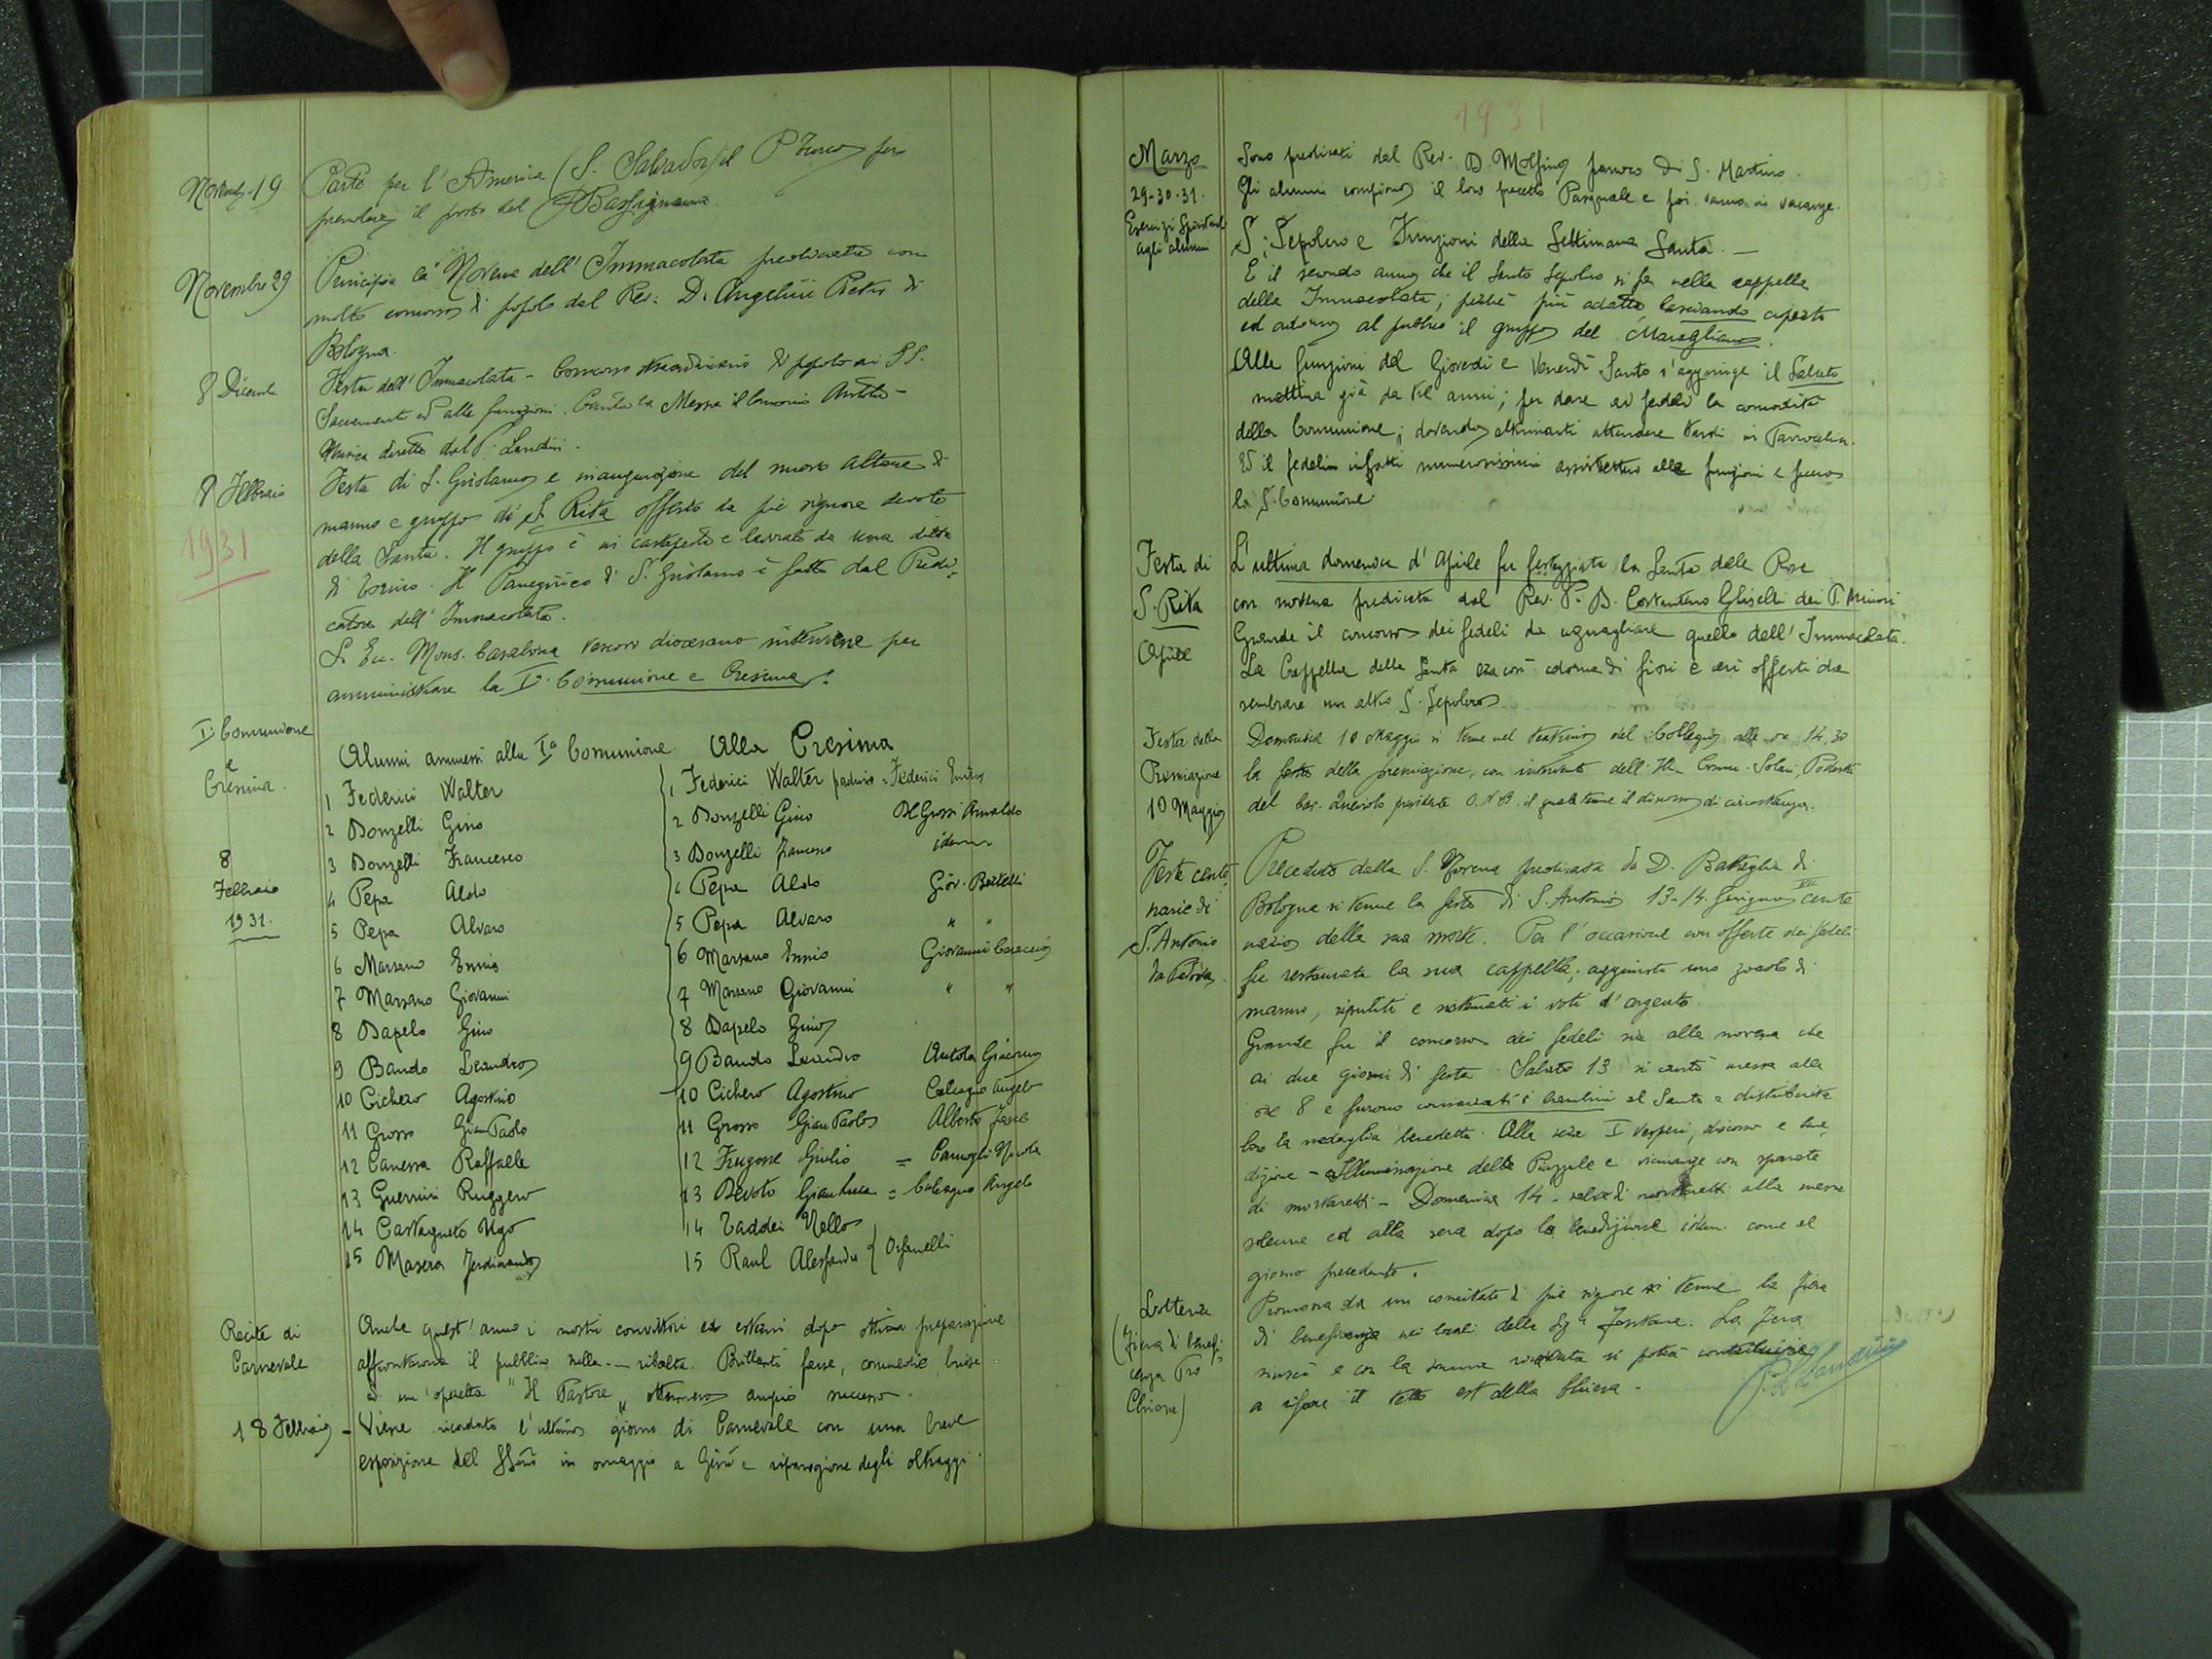 Novemb. 19
Parte per l'America (S. Salvador) il P. Turco per
prendere il posto del P. Bassignana
Novembre 29
Principia la Novena dell'Immacolata predicata con
molto concorso di popolo dal Rev. D. Angelini Pietro di
Bologna.
8 Dicemb
Festa dell'Immacolata - Concorso straordinario di popolo ai SS.
Sacramenti ed alle funzioni. Canta la Messa il Canonico Antola -
Musica diretta dal P. Landini.
8 Febbraio
1931
Festa di S. Girolamo e inaugurazione del nuovo altare di
marmo e gruppo di S. Rita offerto da pie signore devote
della Santa. Il gruppo è in cartapesta e lavorato da una ditta
di Torino. Il Panegirico di S. Girolamo è fatto dal Predi-
catore dell'Immacolata.
S. Ecc. Mons. Casabona vescovo diocesano interviene per
amministrare la Iª Comunione e Cresima.
Iª Comunione
e
Cresima.
8
Febbraio
1931.
Alunni ammessi alla Iª Comunione. Alla Cresima
1 Federici Walter 1 Federici Walter padrino = Federici
2 Donzelli Gino 2 Donzelli Gino Del Grossi Arnaldo
3 Donzelli Francesco 3 Donzelli Francesco idem
4 Pepa Aldo 4 Pepa Aldo Giov. Bertelli
5 Pepa Alvaro 5 Pepa Alvaro " "
6 Marsano Ennio 6 Marsano Ennio Giovanni
7 Marsano Giovanni 7 Marsano Giovanni " "
8 Dapelo Gino 8 Dapelo Gino
9 Bando Leandro 9 Bando Leandro Antola Giacomo
10 Cichero Agostino 10 Cichero Agostino Calcagno Angelo
11 Grosso GianPaolo 11 Grosso GianPaolo Alberto
12 Canessa Raffaele 12 Frugone Giulio = Camogli Nicola
13 Guerrini Ruggero 13 Devoto Gianluca = Calcagno Angelo
14 Castagneto Ugo 14 Taddei Nello
15 Masera Ferdinando 15 Raul Alessandro } Orfanelli
Recite di
Carnevale
Anche quest'anno i nostri convittori ed esterni dopo ottima preparazione
affrontarono il pubblico nella - ribalta. Brillanti farse, commedie, brisse
ed un'operetta "Il Pastore" ottennero ampio successo.
18 Febbraio -
Viene ricordato l'ultimo giorno di Carnevale con una breve
esposizione del SSmo in omaggio a Gesù e riparazione degli oltraggi.
1931
Marzo
29-30-31.
Esercizi Spirituali
agli alunni
Sono predicati dal Rev. D. Molfino parroco di S. Martino.
Gli alunni compiono il loro precetto Pasquale e poi vanno in vacanze.
S. Sepolcro e Funzioni della Settimana Santa. -
È il secondo anno che il Santo Sepolcro si fa nella cappella
della Immacolata, perchè più adatta lasciando aperto
ed adorno al pubblico il gruppo del Maragliano.
Alle funzioni del Giovedì e Venerdì Santo s'aggiunge il Sabato
mattina già da tre anni; per dare ai fedeli la comodità
della Comunione; dovendo altrimenti attendere tardi in Parrocchia.
Ed il fedeli infatti numerosissimi assistettero alle funzioni e fecero
la S. Comunione
Festa di
S. Rita
Aprile
L'ultima domenica d'Aprile fu festeggiata la Santa delle Rose
con novena predicata dal Rev. P. B. Costantino Ghiselli dei P. Minori
Grande il concorso dei fedeli da uguagliare quello dell'Immacolata.
La Cappella della Santa era così adorna di fiori e ceri offerti da
sembrare un altro S. Sepolcro.
Festa della
Premiazione
10 Maggio
Domenica 10 Maggio si tenne nel teatrino del Collegio alle ore 14,30
la festa della premiazione, con intervento dell'Ill. Comm. Solari, Podestà
del Cav. Queirolo presidente O.N.B. il quale tenne il discorso di circostanza.
Feste cente-
narie di
S. Antonio
da Padova.
Preceduto dalla S. Novena predicata da D. Battaglia di
Bologna si tenne la festa di S. Antonio 13-14 Giugno VII cente
nario della sua morte. Per l'occasione con offerte dei fedeli
fu restaurata la sua cappella, aggiunto uno zoccolo di
marmo, ripuliti e sistemati i voti d'argento.
Grande fu il concorso dei fedeli sia alla novena che
ai due giorni di festa. Sabato 13 si cantò messa alle
ore 8 e furono consacrati i bambini al Santo e distribuita
loro la medaglia benedetta. Alla sera I Vesperi, discorso e bene-
dizione - Illuminazione della Piazzale e vicinanze con sparate
di mortaretti - Domenica 14 - salve di mortaretti alla messa
solenne ed alla sera dopo la benedizione idem. come el
giorno precedente.
Lotteria
(Fiera di benefi-
cenza Pro
Chiesa)
Promossa da un comitato di pie signore si tenne la fiera
di beneficenza nei locali della Sgª Fontana. La fiera
riuscì e con la somma ricavata si potrà contribuire
a rifare il tetto est della Chiesa -
P. Landini